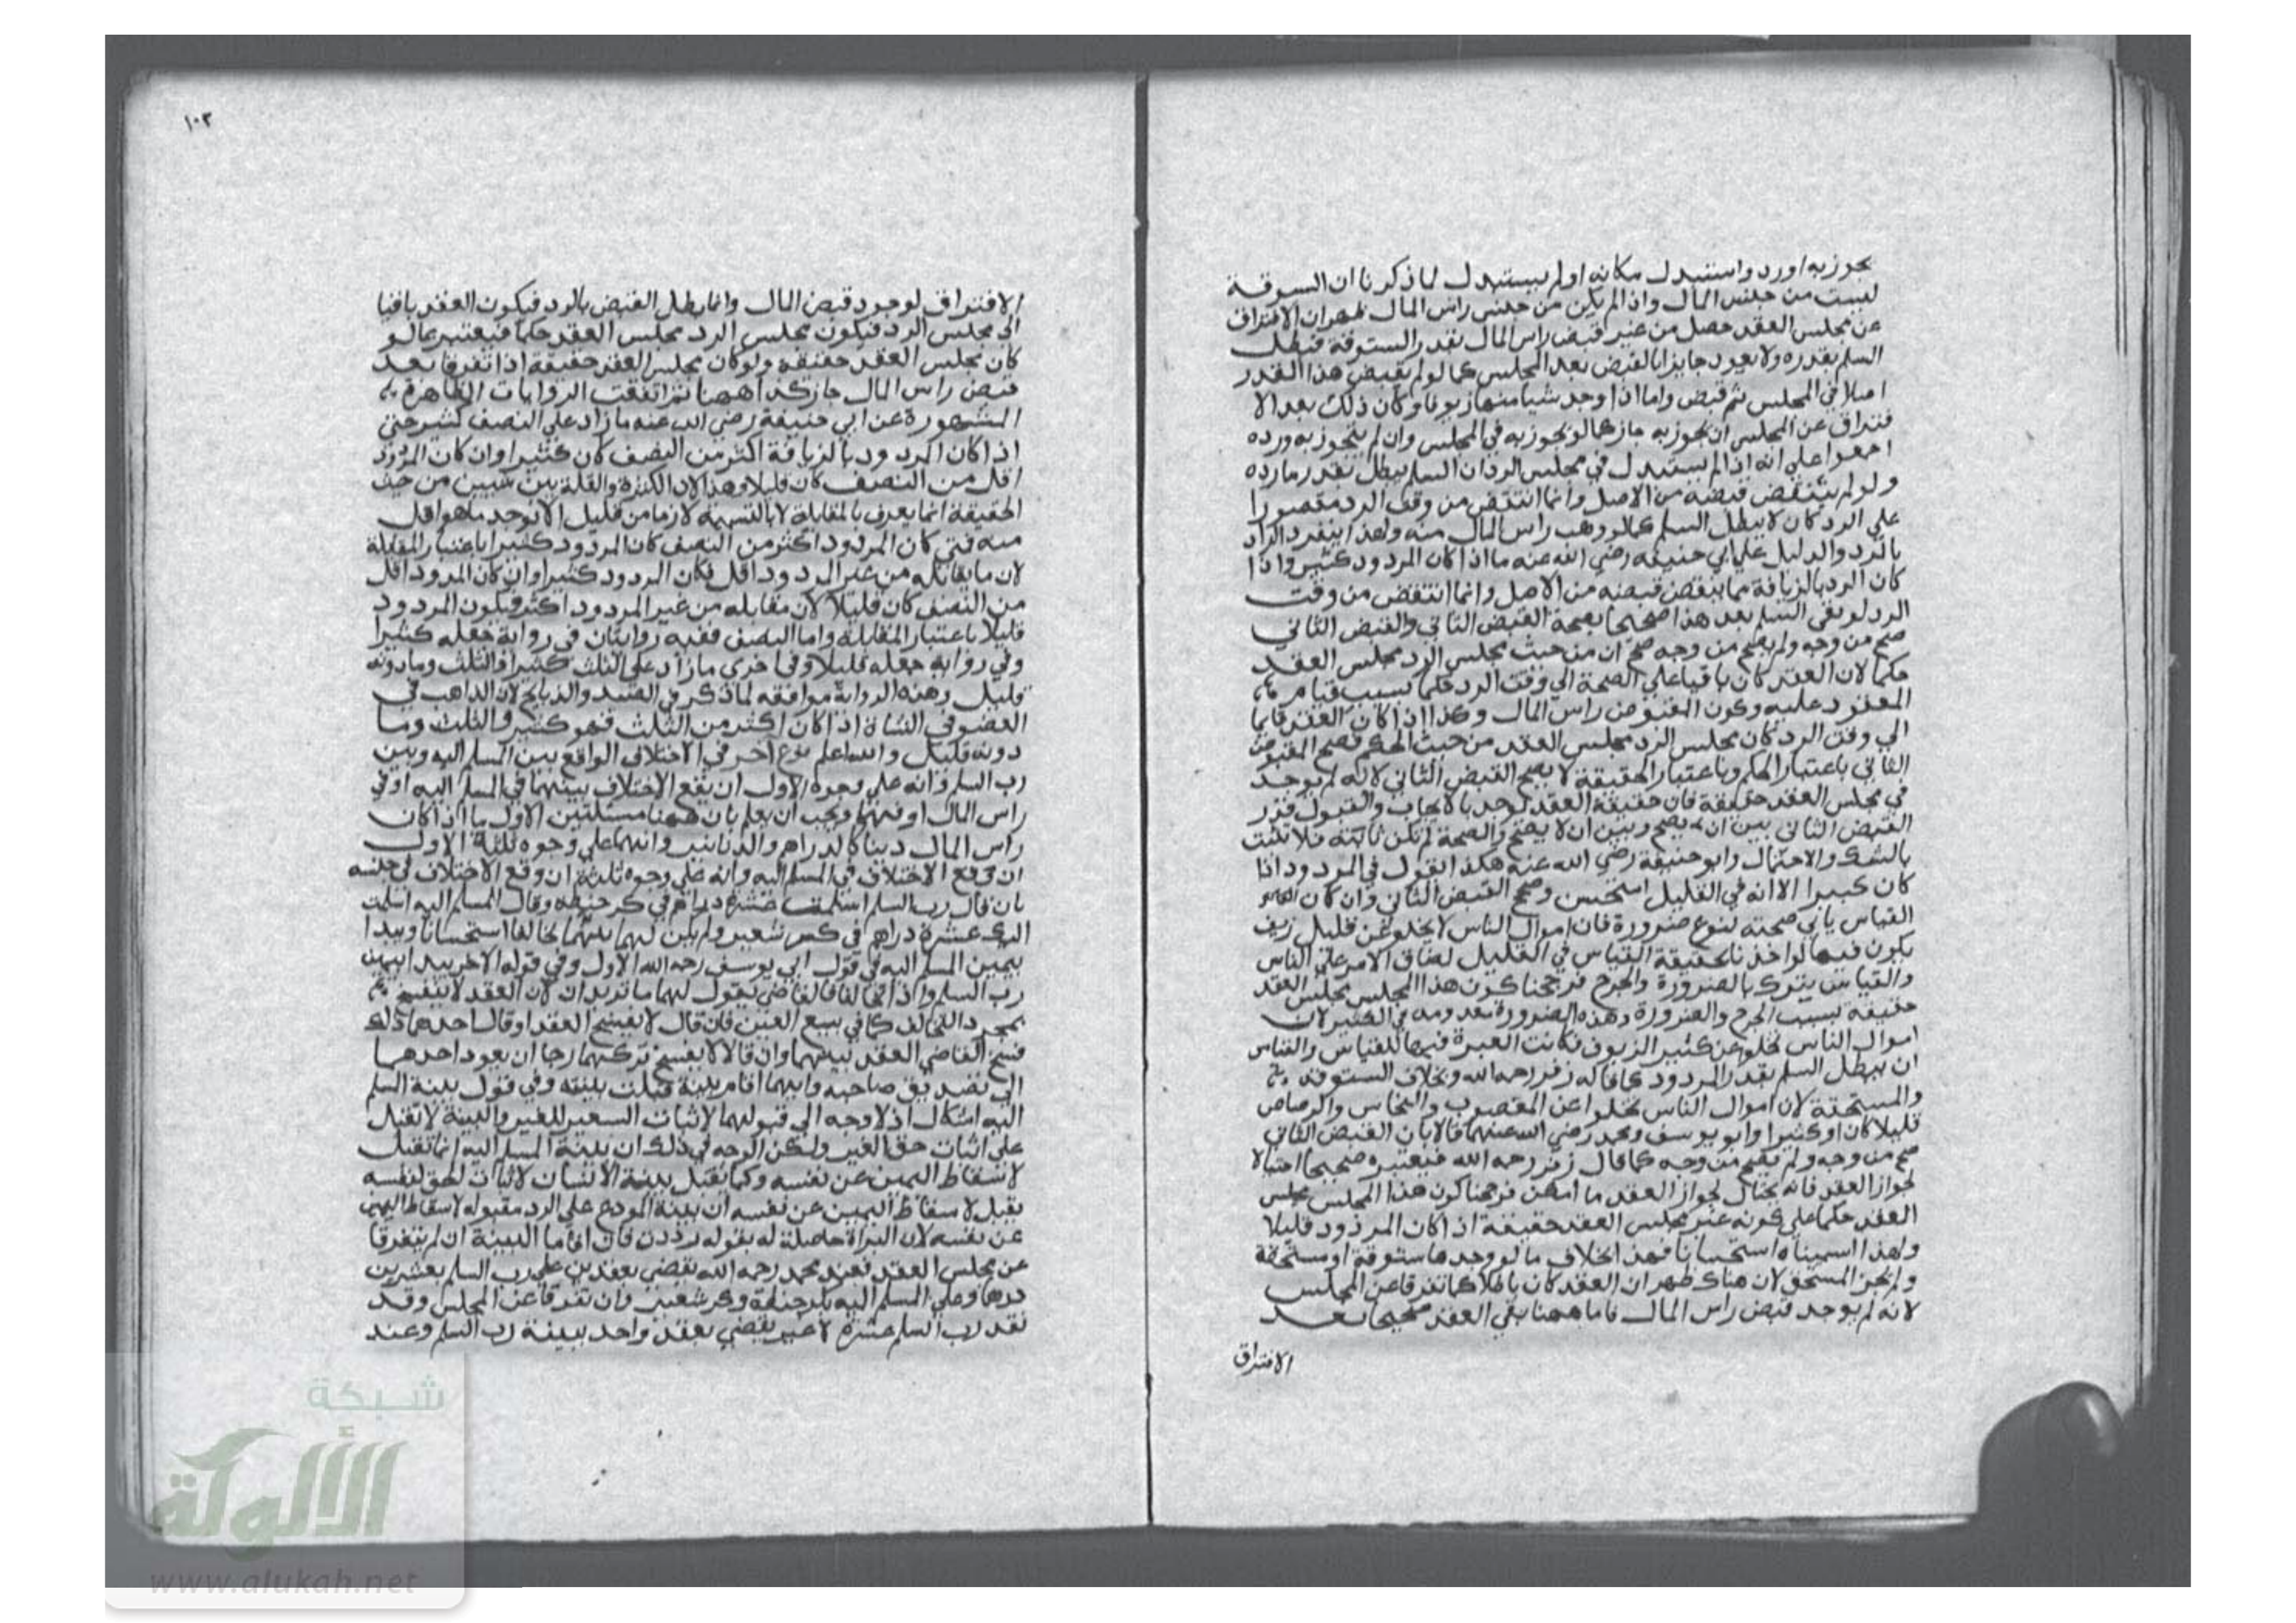 تجوز به او رد واستبدل مكانه او لم يستبدل لما ذكرنا ان الستوقة
ليست من جنس المال واذا لم يكن من جنس راس المال ظهر ان الافتراق
عن مجلس العقد حصل من غير قبض راس المال بقدر الستوقة فيبطل
السلم بقدره ولا يعود جايزا بالقبض بعد المجلس كما لو لم يقبض هذا القدر
اصلا في المجلس ثم قبض واما اذا وجد شيا منها زيوفا وكان ذلك بعد الا
فتراق عن المجلس ان تجوز به جاز كما لو تجوز به في المجلس وان لم يتجوز به ورده
اجمعوا على انه اذا لم يستبدل في مجلس الرد ان السلم يبطل بقدر ما رده
ولو لم ينتقض قبضه من الاصل وانما انتقض من وقت الرد مقصورا
على الرد كان لا يبطل السلم كما لو وهب راس المال منه ولهذا ينفرد الراد
بالرد والدليل على ابي حنيفة رضي الله عنه ما اذا كان المردود كثير واذا
كان الرد بالزيافة مما ينقض قبضه من الاصل وانما انتقض من وقت
الرد لو بقي السلم بعد هذا صحيحا بصحة القبض الثاني والقبض الثاني
صح من وجه ولم يصح من وجه صح ان من حيث مجلس الرد مجلس العقد
حكما لان العقد كان باقيا على الصحة الى وقت الرد حكما بسبب قيام
المعقود عليه وكون المقبوض راس المال وكذا اذا كان العقد قايما
الى وقت الرد كان مجلس الرد مجلس العقد من حيث الحكم فصح المقبوض
الثاني باعتبار الحكم وباعتبار الحقيقة لا يصح القبض الثاني لانه لم يوجد
في مجلس العقد حقيقة فان حقيقة العقد توجد بالايجاب والقبول فدر
القبض الثاني بين ان يصح وبين ان لا يصح والصحة لم تكن ثابتة فلا تثبت
بالشك والاحتمال وابو حنيفة رضي الله عنه هكذا يقول في المردود اذا
كان كبيرا الا انه في القليل استحسن وصح القبض الثاني وان كان
القياس يابى صحته لنوع ضرورة فان اموال الناس لا يخلو عن قليل زيف
يكون فيها لو اخذنا بحقيقة القياس في القليل لضاق الامر على الناس
والقياس يترك بالضرورة والحرج فرجحنا كون هذا المجلس مجلس العقد
حقيقة بسبب الحرج والضرورة وهذه الضرورة معدومة في الكثير لان
اموال الناس تخلو عن كثير الزيوف فكانت العبرة فيها للقياس والقياس
ان يبطل السلم بقدر المردود كما قاله زفر رحمه الله وبخلاف الستوقة
والمستحقة لان اموال الناس تخلوا عن المغصوب والنحاس والرصاص
قليلا كان او كثيرا وابو يوسف ومحمد رضي الله عنهما قالا بان القبض الثاني
صح من وجه ولم يصح من وجه كما قال زفر رحمه الله فيعتبره صحيحا احتيالا
لجواز العقد فانه يحتال لجواز العقد ما امكن فرجحنا كون هذا المجلس مجلس
العقد حكما على كونه غير مجلس العقد حقيقة اذا كان المردود قليلا
ولهذا اسميناه استحسانا فهذا بخلاف ما لو وجدها ستوقة او مستحقة
ولم يجز المستحق لان هناك ظهر ان العقد كان باطلا كما تفرقا عن المجلس
لانه لم يوجد قبض راس المال فاما ههنا بقي العقد صحيحا بعد
الافتراق
١٠٣
الافتراق لوجود قبض المال وانما بطل القبض بالرد فيكون العقد باقيا
الى مجلس الرد فيكون مجلس الرد مجلس العقد حكما فيعتبر بما لو
كان مجلس العقد حقيقة ولو كان مجلس العقد حقيقة اذا تفرقا بعد
قبض راس المال جاز كذا ههنا ثم اتفقت الروايات الظاهرة
المشهورة عن ابي حنيفة رضي الله عنه ما زاد على النصف كثير حتى
اذا كان المردود بالزيافة اكثر من النصف كان كثيرا وان كان المردود
اقل من النصف كان قليلا وهذا لان الكثرة والقلة بين شيين من حيث
الحقيقة انما يعرف بالمقابلة لا بالتسمية لازما من قليل الا توجد ما هو اقل
منه فمتى كان المردود اكثر من النصف كان المردود كثيرا باعتبار المقابلة
لان ما يقابله من غير المردود اقل فكان المردود كثيرا وان كان المردود اقل
من النصف كان قليلا لان مقابله من غير المردود اكثر فيكون المردود
قليلا باعتبار المقابلة واما النصف ففيه روايتان في رواية جعله كثيرا
وفي رواية جعله قليلا وفي اخرى ما زاد على الثلث كثيرا والثلث وما دونه
قليل وهذه الرواية موافقة لما ذكر في الصيد والذبايح لان الذاهب في
العضو في الشاة اذا كان اكثر من الثلث فهو كثير والثلث وما
دونه قليل والله اعلم نوع اخر في الاختلاف الواقع بين المسلم اليه وبين
رب السلم وانه على وجوه الاول ان يقع الاختلاف بينهما في المسلم اليه او في
راس المال او فيهما ويجب ان يعلم بان ههنا مسئلتين الاول ما اذا كان
راس المال دينا كالدراهم والدنانير وانهما على وجوه ثلثة الاول
ان وقع الاختلاف في المسلم اليه وانه على وجوه ثلثة ان وقع الاختلاف في جنسه
بان قال رب السلم اسلمت عشرة دراهم في كر حنطة وقال المسلم اليه اسلمت
اليك عشرة دراهم في كر شعير ولم يكن لهما بينهما تحالفا استحسانا ويبدا
بيمين المسلم اليه في قول ابي يوسف رحمه الله الاول وفي قوله الاخر يبدا بيمين
رب السلم واذا تحالفا فالقاضي يقول لهما ما تريدان لان العقد لا ينفسخ
بمجرد التحالف كما في بيع العين فان قال لا يفسخ العقد او قال احدهما ذلك
فسخ القاضي العقد بينهما وان قالا لا يفسخ تركهما رجا ان يعود احدهما
الى تصديق صاحبه وايهما اقام بينة قبلت بينته وفي قول بينة السلم
اليه اشكال اذ لا وجه الى قبولهما لاثبات السعير للغير والبينة لا تقبل
على اثبات حق الغير ولكن الوجه في ذلك ان بينة المسلم اليه انما تقبل
لاسقاط اليمين عن نفسه وكما تقبل بينة الانسان لاثبات الحق لنفسه
يقبل لاسقاط اليمين عن نفسه ان بينة المودع على الرد مقبولة لاسقاط اليمين
عن نفسه لان البراة حاصلة له بقوله رددت فان اقاما البينة ان لم يتفرقا
عن مجلس العقد فعند محمد رحمه الله يقضي بعقدين على رب السلم بعشرين
درهما وعلى المسلم اليه بكر حنطة وكر شعير وان تفرقا عن المجلس وقد
نقد رب السلم عشرة لا غير يقضي بعقد واحد ببينة رب السلم وعند
شبكة
الألوكة
www.alukah.net